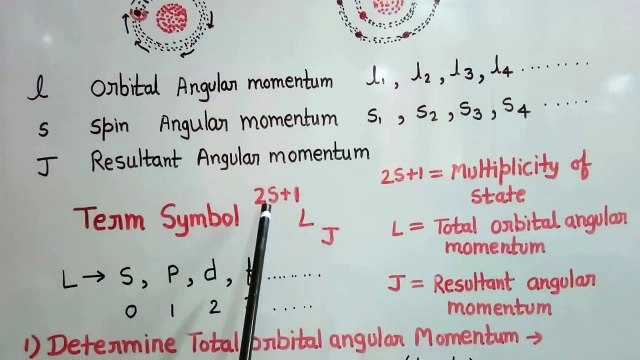 l Orbital Angular momentum l1, l2, l3, l4 ........
s spin Angular momentum s1, s2, s3, s4 ......
J Resultant Angular momentum
Term Symbol 2S+1 L J
2S+1 = Multiplicity of
state
L = Total orbital angular
momentum
J = Resultant angular
momentum
L → S, P, d, ........
0 1 2 .....
1) Determine Total orbital angular Momentum →